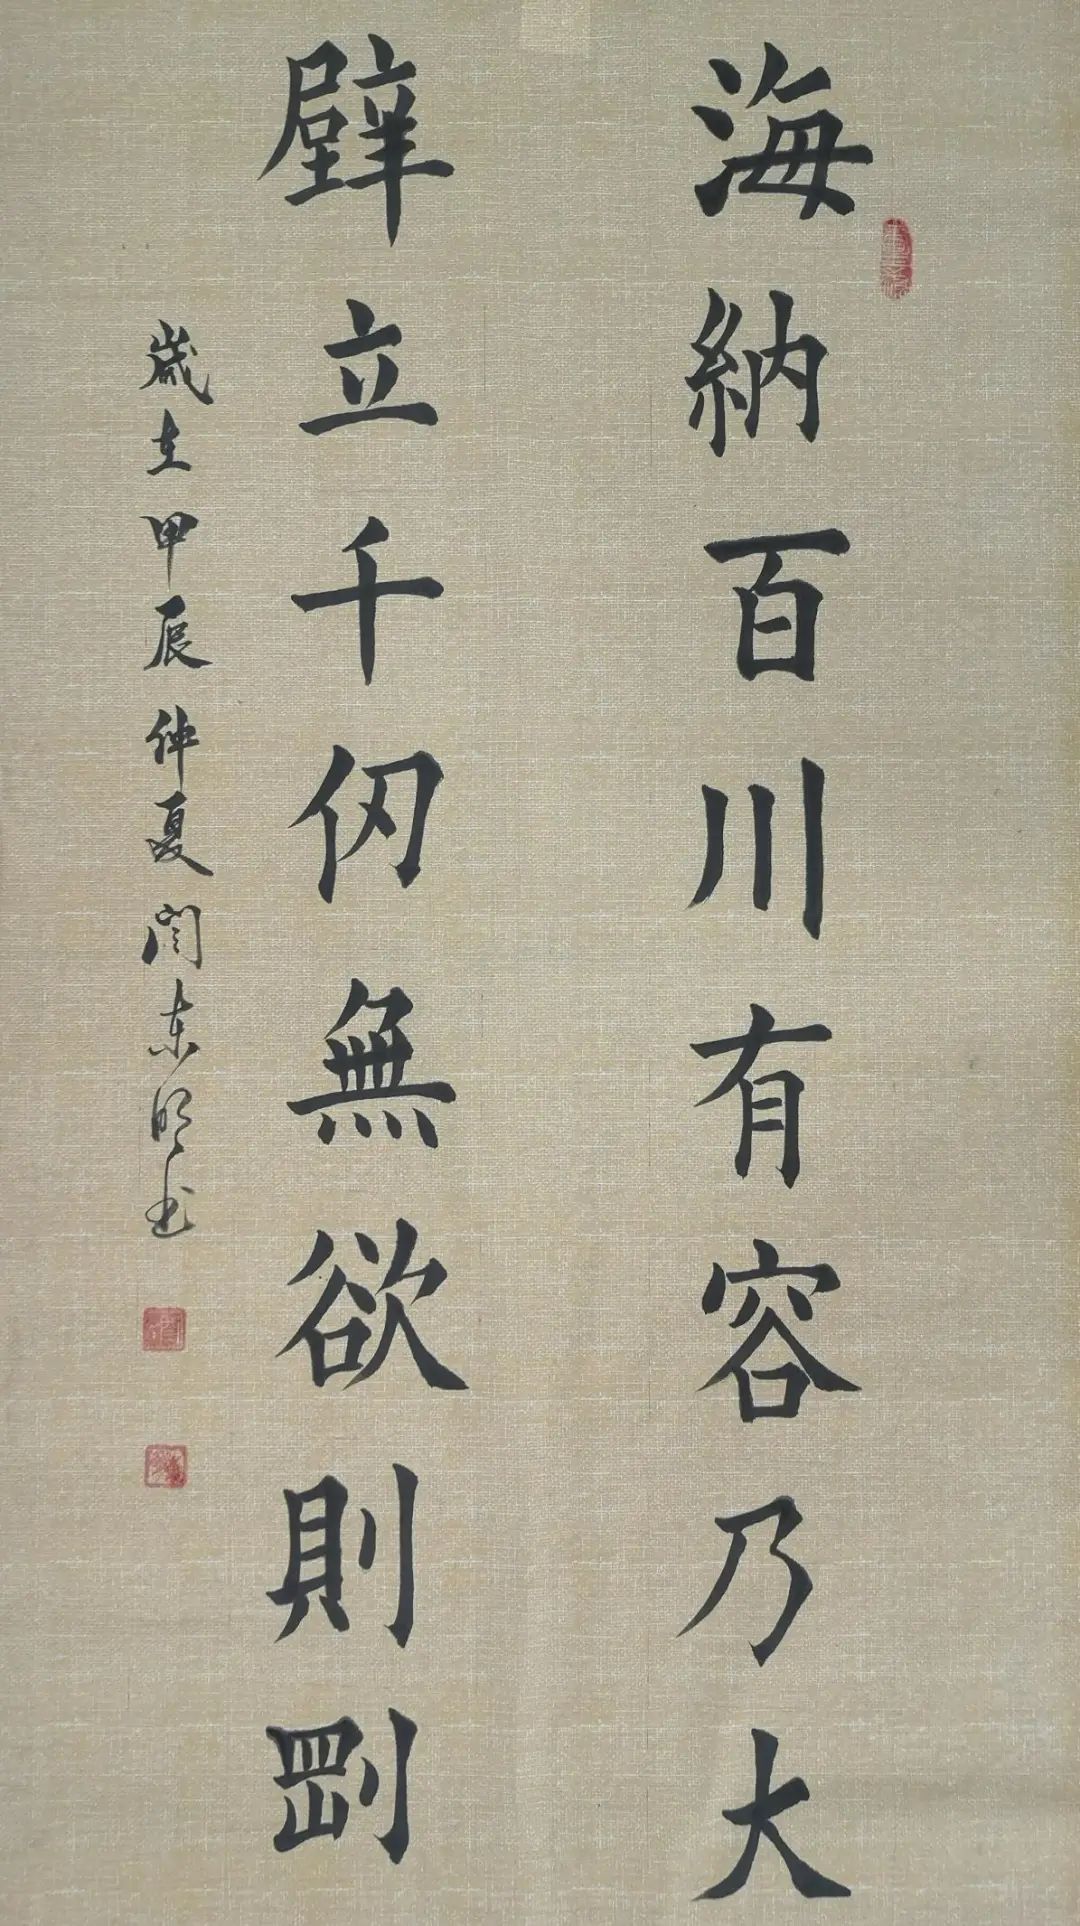 海納百川有容乃大
壁立千仞無欲則剛
歲在甲辰仲夏閆東明书